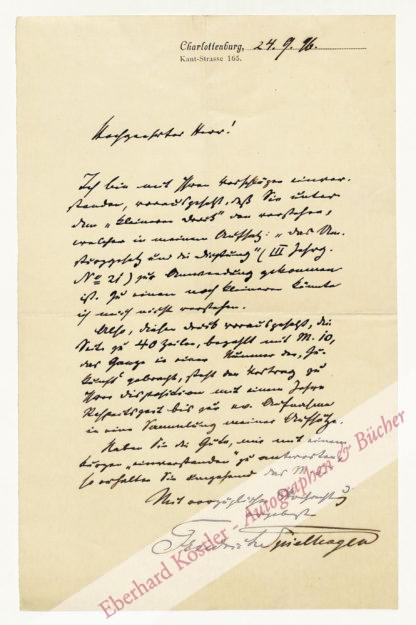 Charlottenburg, 24. 9. 96.
Kant-Strasse 165.
Hochgeehrter Herr!
Ich bin mit Ihren Vorschlägen einver-
standen, vorausgesetzt, daß Sie unter
dem „kleineren Druck“ den verstehen,
welcher in meinem Aufsatz: „Das Um-
sturzgesetz und die Dichtung“ (III Jahrg.
No 21) zur Anwendung gekommen
ist. Zu einem noch kleineren könnte
ich mich nicht verstehen.
Also, diesen Druck vorausgesetzt, die
Seite zu 40 Zeilen, bezahlt mit M. 10,
das Ganze in einer Nummer der „Zu-
kunft“ gebracht, steht der Vortrag zu
Ihrer Disposition mit einem Jahre
bis zur ev. Aufnahme
in eine Sammlung meiner Aufsätze.
Haben Sie die Güte, mir mit einem
kurzen „einverstanden“ zu antworten,
so erhalten Sie umgehend das
Mit vorzüglicher Hochachtung
ergebenst
Friedrich Spielhagen
Eberhard Köstler - Autographen & Bücher